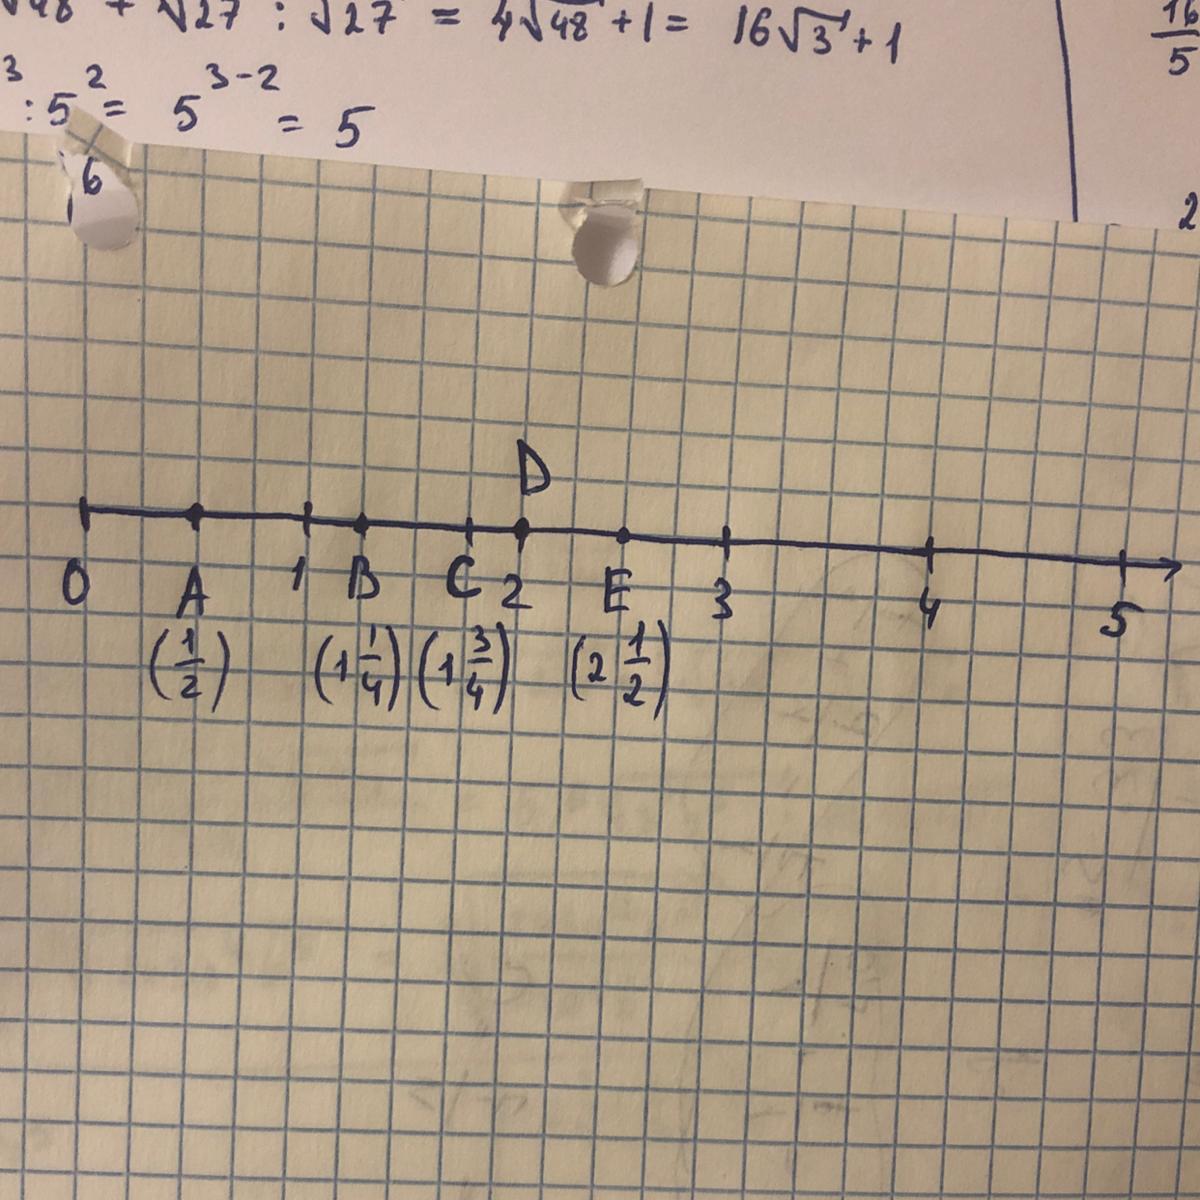 √48 + √27 : √27 = 4√48 + 1 = 16√3 + 1
16/5
3 : 5² = 5³⁻² = 5
6
2
D
0 A 1 B C 2 E 3 4 5
(1/2) (1 1/4) (1 3/4) (2 1/2)